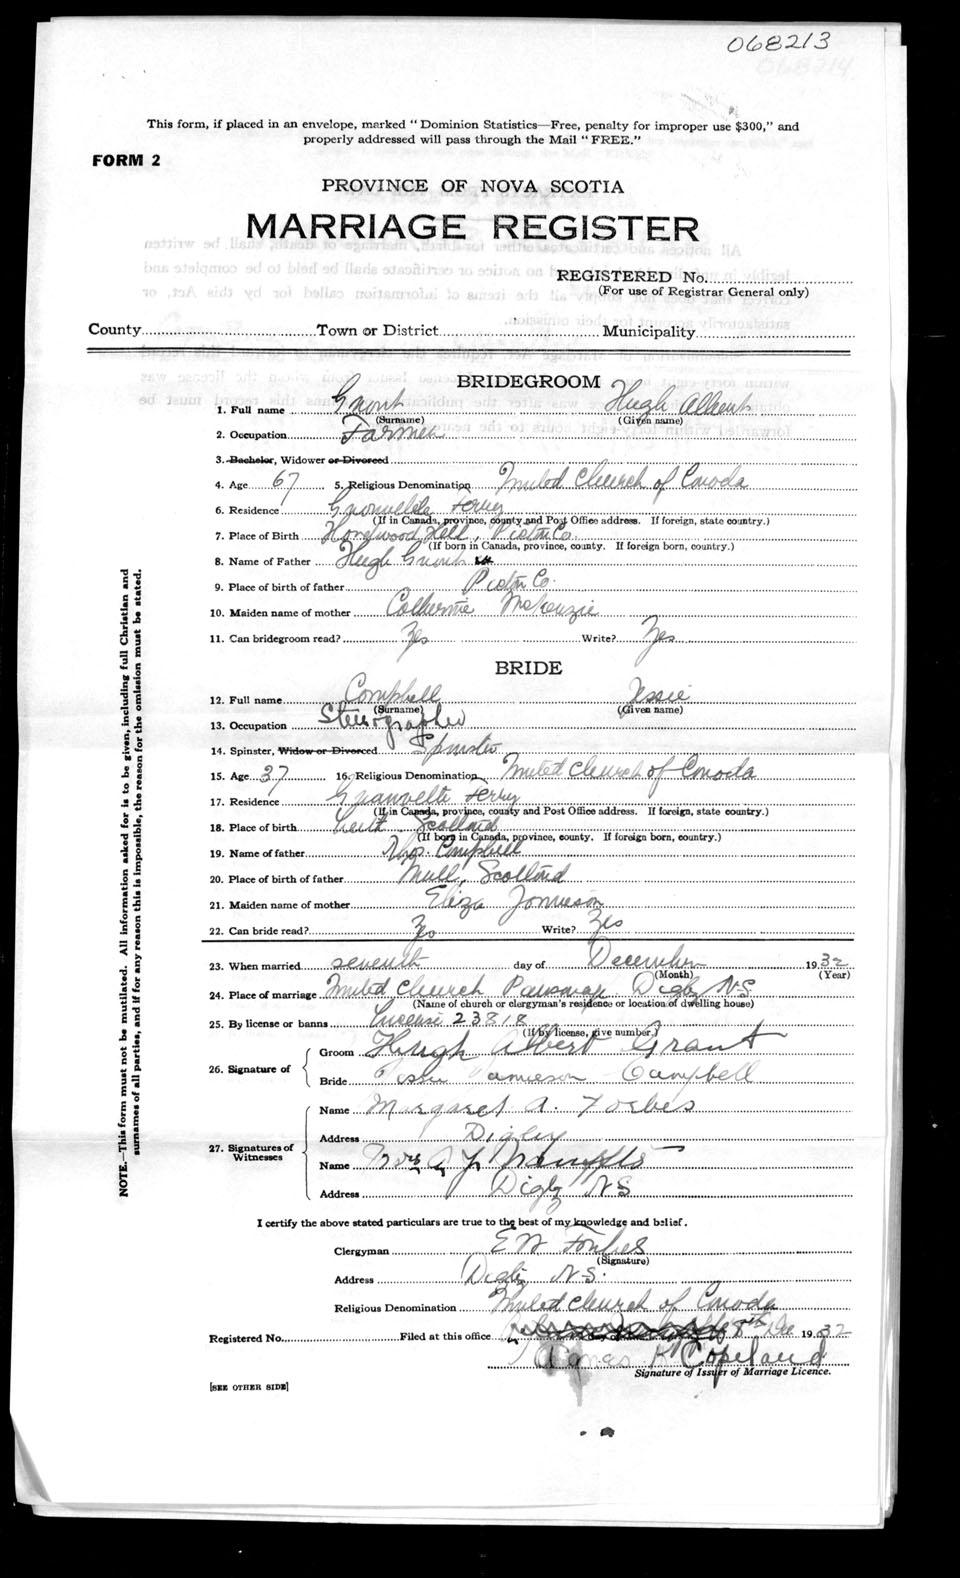 068213
This form, if placed in an envelope, marked "Dominion Statistics—Free, penalty for improper use $300," and
properly addressed will pass through the Mail "FREE."
FORM 2
PROVINCE OF NOVA SCOTIA
MARRIAGE REGISTER
REGISTERED No.
(For use of Registrar General only)
County Town or District Municipality
BRIDEGROOM
1. Full name Grant Hugh Albert
(Surname) (Given name)
2. Occupation Farmer
3. Bachelor, Widower or Divorced
4. Age 67 5. Religious Denomination United Church of Canada
6. Residence Granville Ferry
(If in Canada, province, county and Post Office address. If foreign, state country.)
7. Place of Birth Hill, Pictou Co.
(If born in Canada, province, county. If foreign born, country.)
8. Name of Father Hugh Grant
9. Place of birth of father Pictou Co.
10. Maiden name of mother Catherine McKenzie
11. Can bridegroom read? Yes Write? Yes
BRIDE
12. Full name Campbell Jessie
(Surname) (Given name)
13. Occupation Stenographer
14. Spinster, Widow or Divorced Spinster
15. Age 37 16. Religious Denomination United Church of Canada
17. Residence Granville Ferry
(If in Canada, province, county and Post Office address. If foreign, state country.)
18. Place of birth Leith Scotland
(If born in Canada, province, county. If foreign born, country.)
19. Name of father Campbell
20. Place of birth of father Mull, Scotland
21. Maiden name of mother Eliza Jamieson
22. Can bride read? Yes Write? Yes
23. When married seventh day of December 1932
(Month) (Year)
24. Place of marriage United Church Parsonage Digby N.S.
(Name of church or clergyman's residence or location of dwelling house)
25. By license or banns License 23818
(If by license, give number.)
26. Signature of
Groom Hugh Albert Grant
Bride Jessie Jamieson Campbell
27. Signatures of Witnesses
Name Margaret A. Forbes
Address Digby
Name Mrs
Address Digby NS
I certify the above stated particulars are true to the best of my knowledge and belief.
Clergyman E W Forbes
(Signature)
Address Digby N.S.
Religious Denomination United Church of Canada
Registered No. Filed at this office 8th Dec 1932
Copeland
Signature of Issuer of Marriage Licence.
[SEE OTHER SIDE]
NOTE.—This form must not be mutilated. All information asked for is to be given, including full Christian and
surnames of all parties, and if for any reason this is impossible, the reason for the omission must be stated.